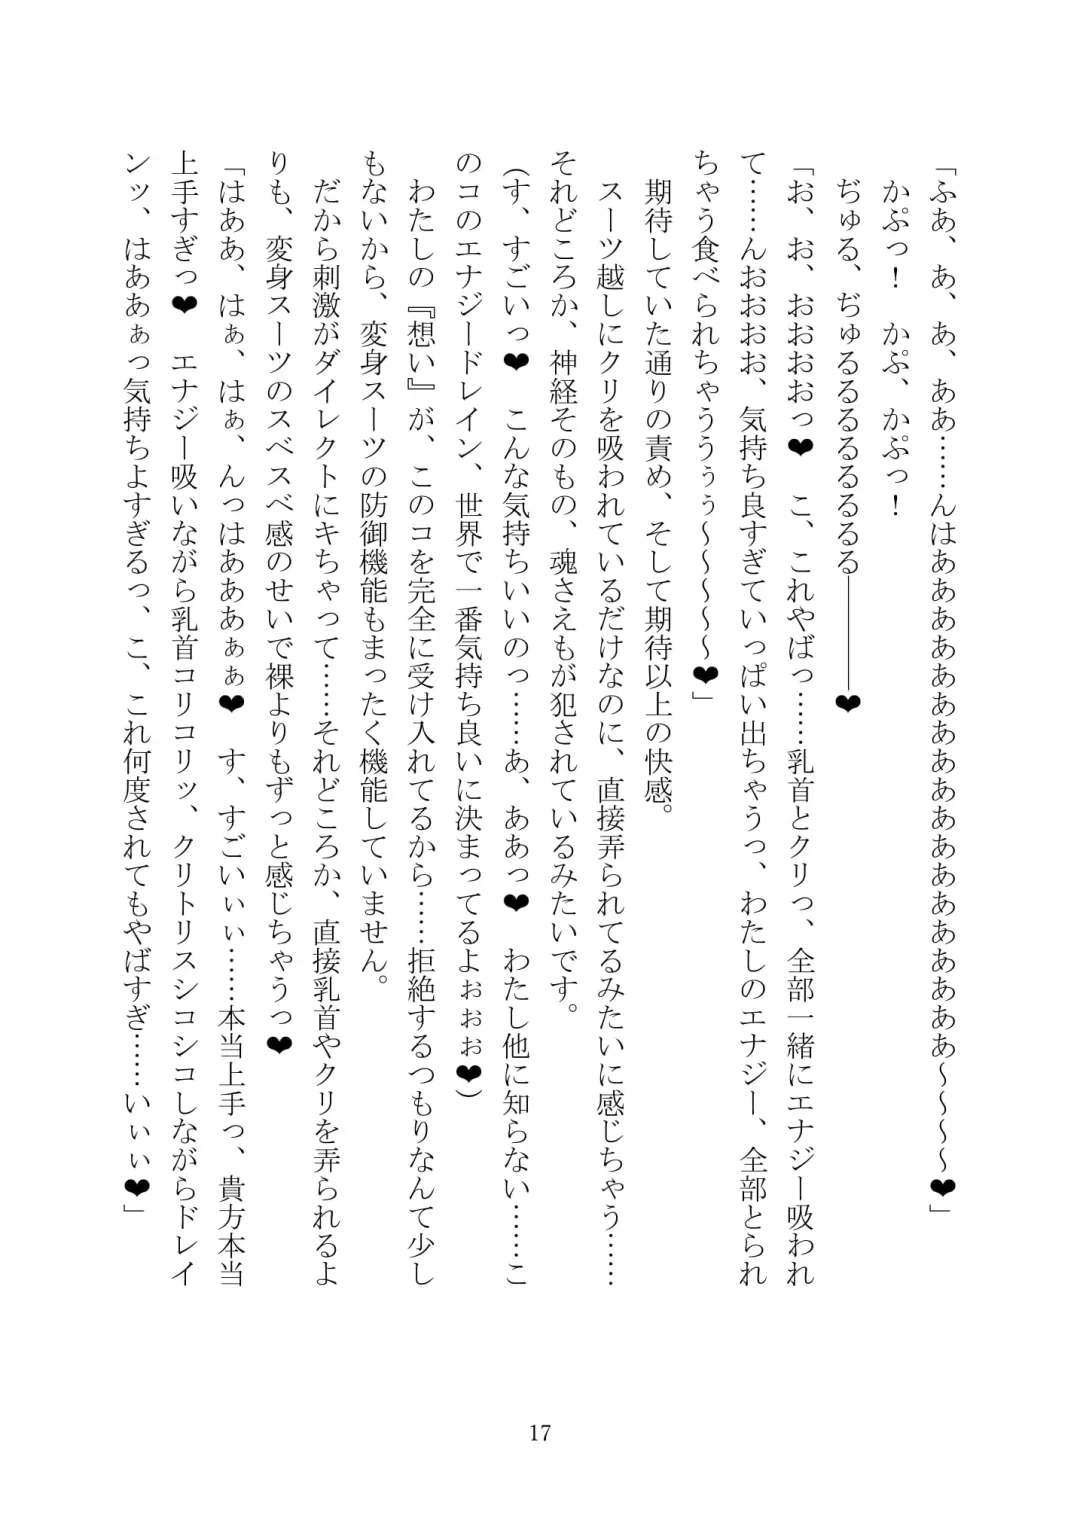 「ふあ、あ、あ、ああ……んはあああああああああああああああああああ～～～～❤」
かぷっ！　かぷ、かぷっ！
ぢゅる、ぢゅるるるるるるる――――❤
「お、お、おおおおっ❤　こ、これやばっ……乳首とクリっ、全部一緒にエナジー吸われ
て……んおおおお、気持ち良すぎていっぱい出ちゃうっ、わたしのエナジー、全部とられ
ちゃう食べられちゃうううぅぅ～～～～～❤」
期待していた通りの責め、そして期待以上の快感。
スーツ越しにクリを吸われているだけなのに、直接弄られてるみたいに感じちゃう……
それどころか、神経そのもの、魂さえもが犯されているみたいです。
（す、すごいっ❤　こんな気持ちいいのっ……あ、ああっ❤　わたし他に知らない……こ
のコのエナジードレイン、世界で一番気持ち良いに決まってるよぉぉぉ❤）
わたしの『想い』が、このコを完全に受け入れてるから……拒絶するつもりなんて少し
もないから、変身スーツの防御機能もまったく機能していません。
だから刺激がダイレクトにキちゃって……それどころか、直接乳首やクリを弄られるよ
りも、変身スーツのスベスベ感のせいで裸よりもずっと感じちゃうっ❤
「はああ、はぁ、はぁ、んっはあああぁぁ❤　す、すごいぃぃ……本当上手っ、貴方本当
上手すぎっ❤　エナジー吸いながら乳首コリコリッ、クリトリスシコシコしながらドレイ
ンッ、はああぁっ気持ちよすぎるっ、こ、これ何度されてもやばすぎ……いぃぃ❤」
17